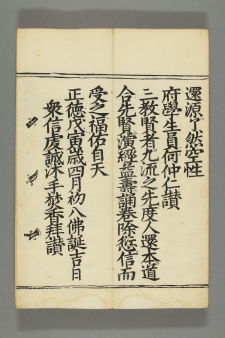 還源了然空性
府學生員何仲仁讃
三教賢者九流之先度人還本道
合先賢演經益壽誦卷除愆信而
受之福佑自天
正德戊寅歲四月初八佛誕吉日
衆信虔誠沐手焚香拜讃